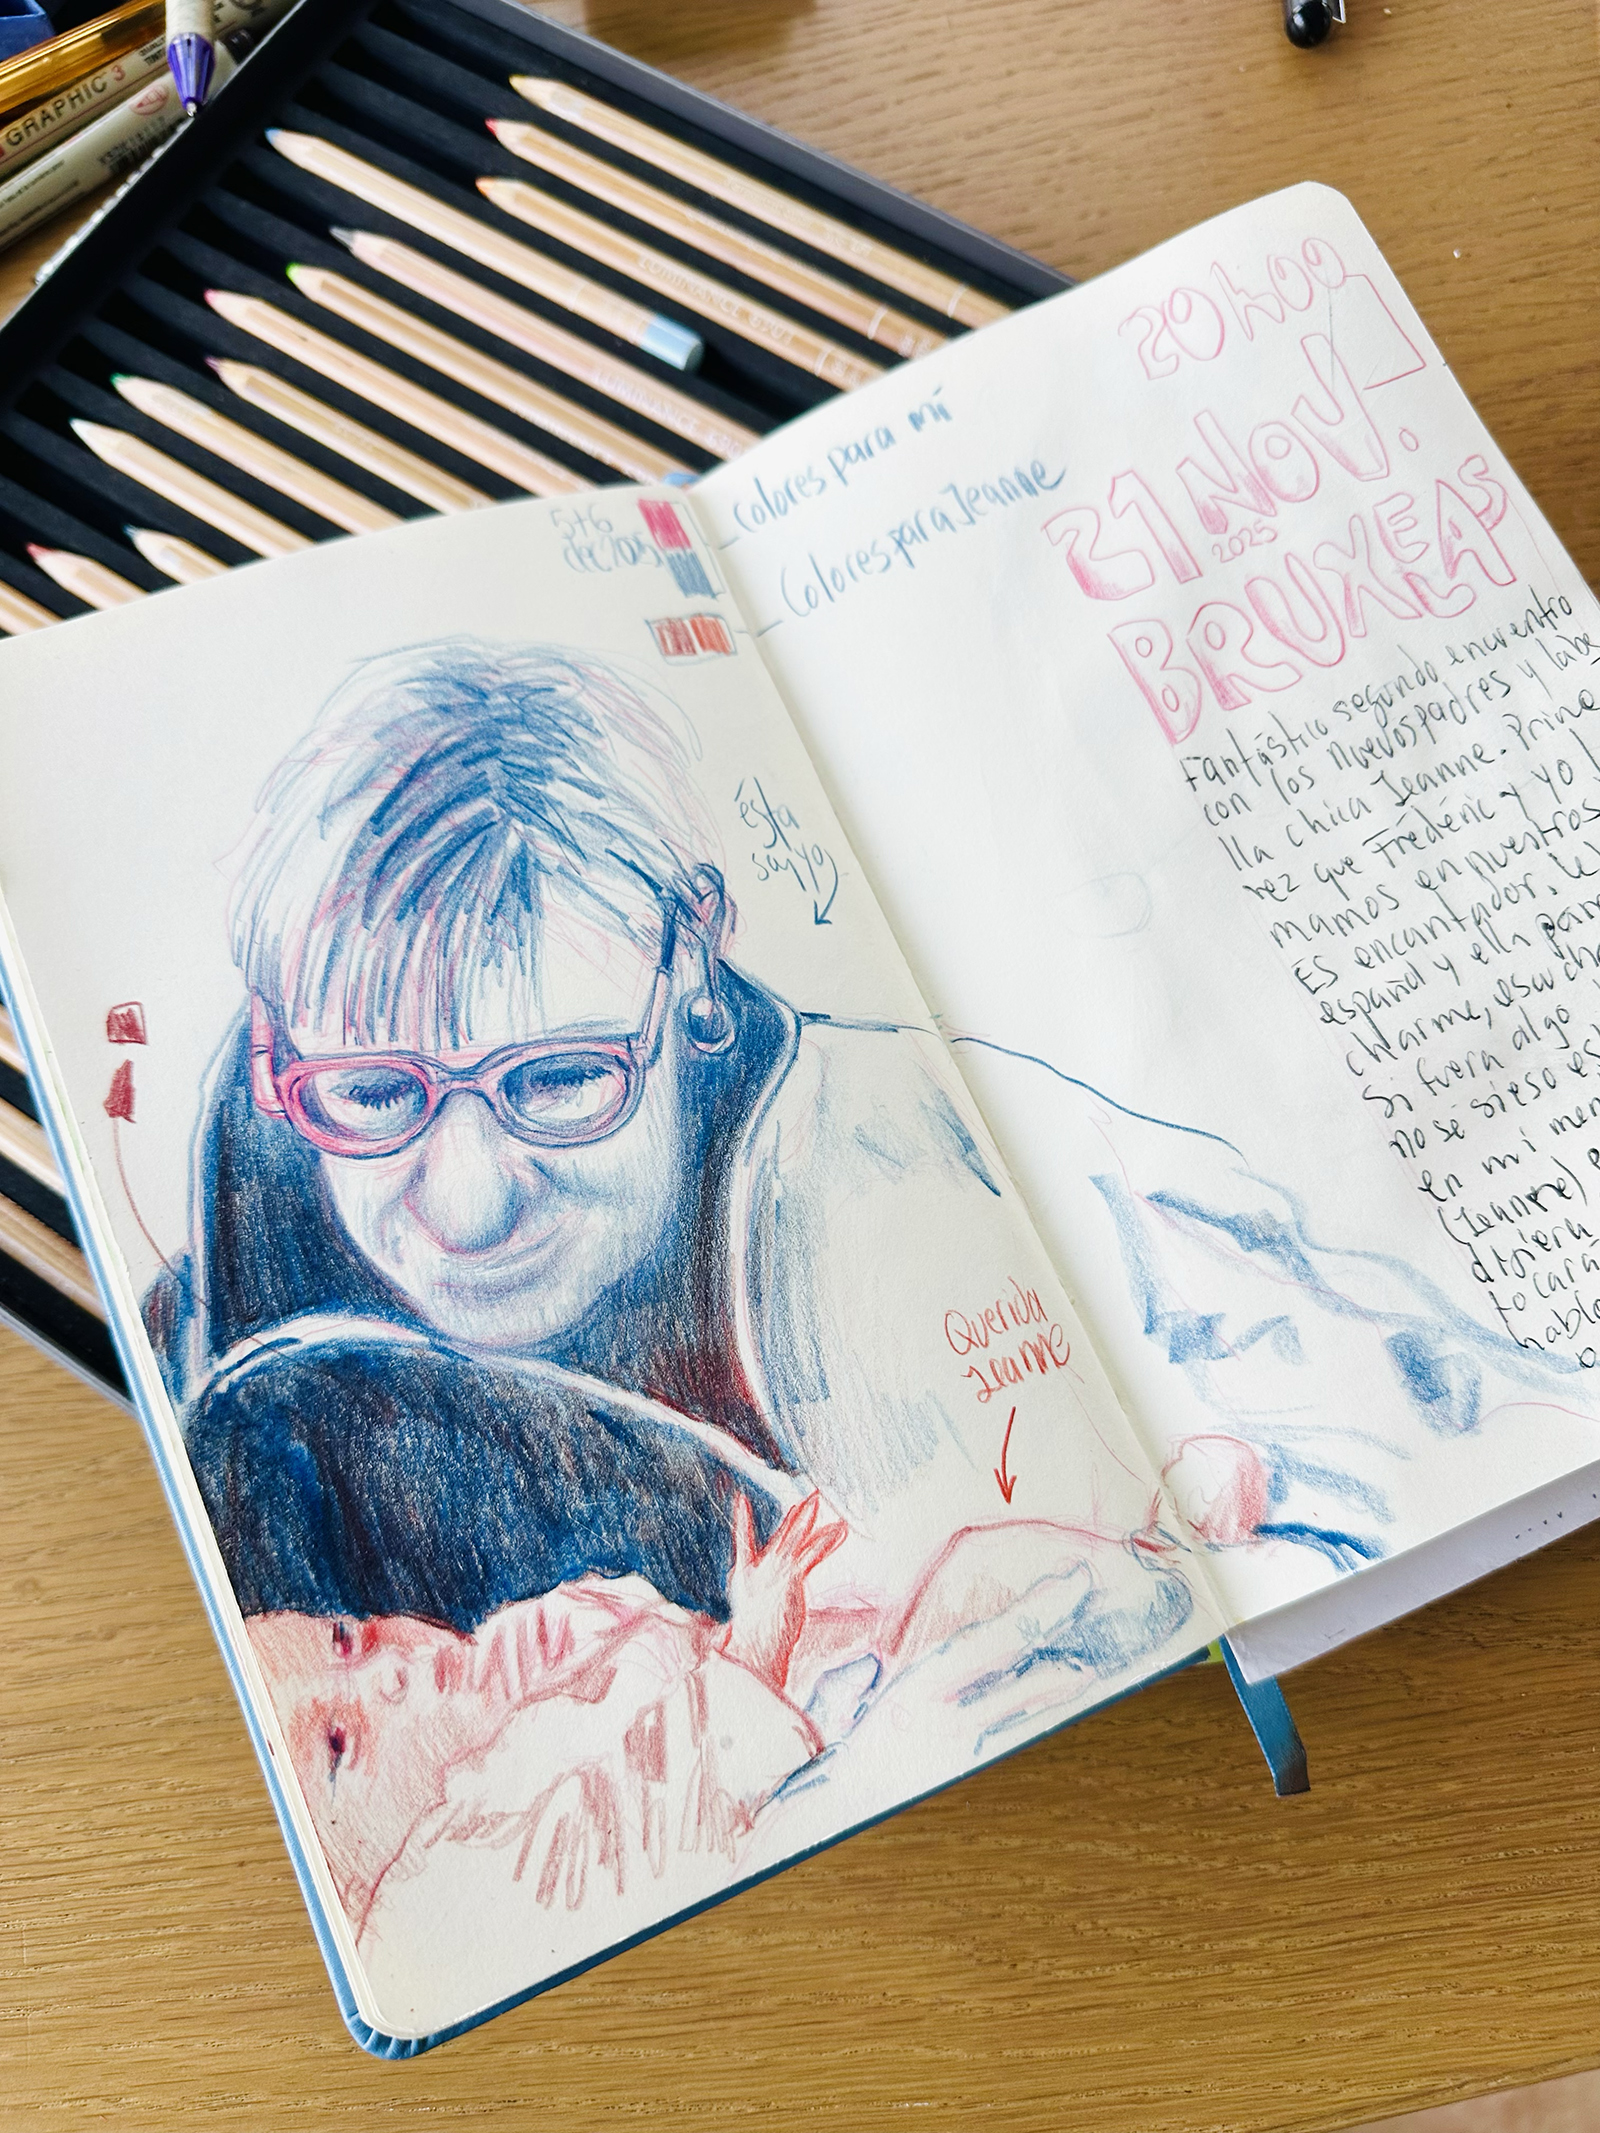 GRAPHIC 3
LUMINANCE 6901
5+6
dec 2025
colores para mí
Colores para Jeanne
20h00
21 NOV.
2025
BRUXELAS
Fantástico segundo encuentro
con los nuevos padres y la be
lla chica Jeanne. Prime
vez que Frédéric y yo
mamos en nuestros
Es encantador. Le
español y ella
charme, escucha
Si fuera algo
no sé si eso es
en mi men
(Jeanne)
dijera
to cara
habla
ésta
soy yo
Querida
Jeanne